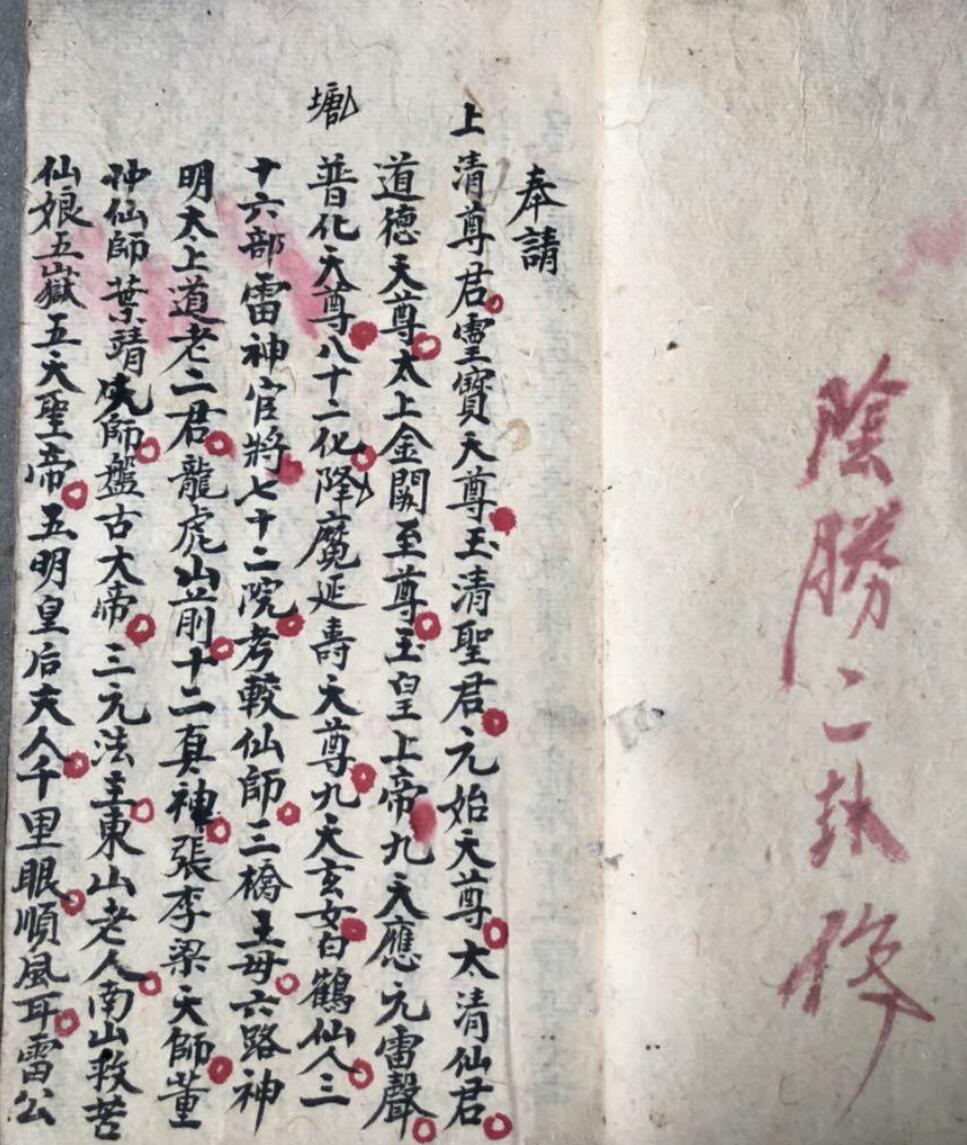 陰勝二
奉請
上清尊君靈寶天尊玉清聖君元始天尊太清仙君
道德天尊太上金闕至尊玉皇上帝九天應元雷聲
普化天尊八十二化降魔延壽天尊九天玄女白鶴仙人三
十六部雷神官將七十二院考較仙師三橋王母六路神
明太上道老二君龍虎山前十二真神張李梁天師董
仲仙師葉靖師盤古大帝三元法主東山老人南山救苦
仙娘五嶽五天聖帝五明皇后夫人千里眼順風耳雷公